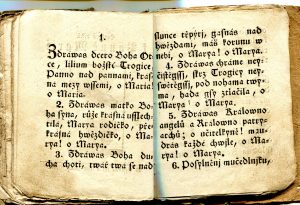 1.
Zdráwas dcero Boha Ot-
ce, lilium božské Trogice,
Panno nad pannami, krás-
na mezy wssemi, o Maria!
o Maria.
2. Zdráwas matko Bo-
ha syna, růže krásná usslech-
tilá, Marya rodičko, pře-
krásná hwězdičko, o Ma-
rya! o Marya.
3. Zdráwas Boha du-
cha choti, twář twá se nad
slunce třpytj, gasnás nad
hwězdami, máš korunu w
nebi, o Marya! o Marya.
4. Zdráwas chráme ney-
čistěgssj, skrz Trogicy ney-
swětěgssj, pod nohama twý-
ma, hada gsy ztlačila, o
Marya! o Marya.
5. Zdráwas Králowno
angelů a Králowno patry-
archů; o učitelkyně! mau-
drás každé chwjle, o Ma-
rya! o Marya.
6. Posylněnj mučedlnjků,